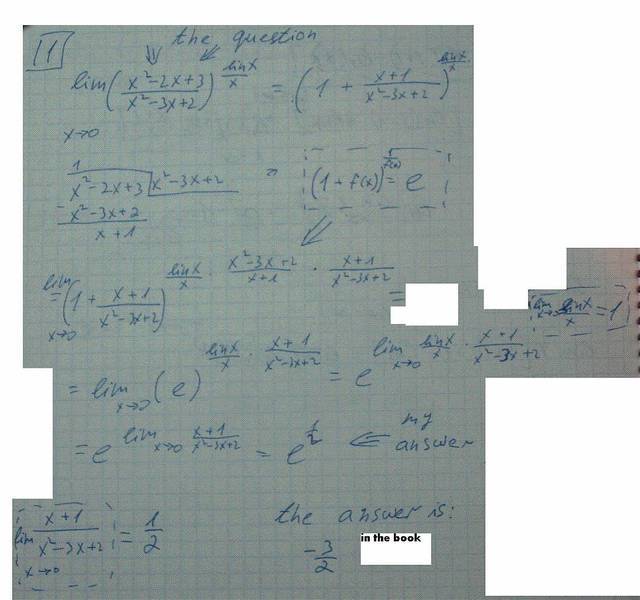 11
the question
lim ( (x²-2x+3)/(x²-3x+2) )^(sinx/x) = ( 1 + (x+1)/(x²-3x+2) )^(sinx/x)
x→0
1
x²-2x+3 | x²-3x+2
- x²-3x+2
x+1
(1+f(x))^(1/f(x)) = e
= lim x→0 ( 1 + (x+1)/(x²-3x+2) )^(sinx/x · (x²-3x+2)/(x+1) · (x+1)/(x²-3x+2)) =
lim x→0 sinx/x = 1
= lim x→0 (e)^(sinx/x · (x+1)/(x²-3x+2)) = e^(lim x→0 sinx/x · (x+1)/(x²-3x+2))
= e^(lim x→0 (x+1)/(x²-3x+2)) = e^(1/2) ⇐ my answer
lim x→0 (x+1)/(x²-3x+2) = 1/2
the answer is:
in the book
-3/2